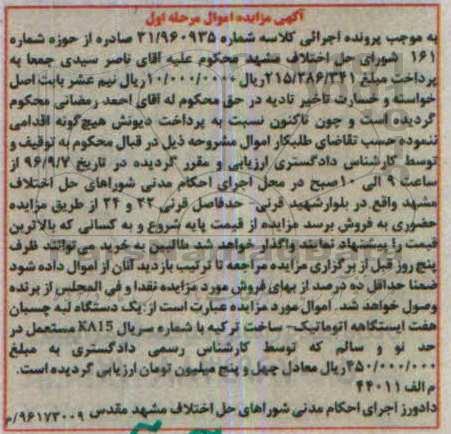 آگهی مزایده اموال مرحله اول
به موجب پرونده اجرائی کلاسه شماره ۳۱/۹۶۰۹۳۵ صادره از حوزه شماره
۱۶۱ شورای حل اختلاف مشهد محکوم علیه آقای ناصر سیدی جمعا به
پرداخت مبلغ ۲۱۵/۳۸۶/۳۴۱ریال +۱۰/۰۰۰/۰۰۰ریال نیم عشر بابت اصل
خواسته و خسارت تاخیر تادیه در حق محکوم له آقای احمد رمضانی محکوم
گردیده است و چون تاکنون نسبت به پرداخت دیونش هیچ گونه اقدامی
ننموده حسب تقاضای طلبکار اموال مشروحه ذیل در قبال محکوم به توقیف و
توسط کارشناس دادگستری ارزیابی و مقرر گردیده در تاریخ ۹۶/۹/۷ از
ساعت ۹ الی ۱۰صبح در محل اجرای احکام مدنی شوراهای حل اختلاف
مشهد واقع در بلوارشهید قرنی- حدفاصل قرنی ۲۲ و ۲۴ از طریق مزایده
حضوری به فروش برسد مزایده از قیمت پایه شروع و به کسانی که بالاترین
قیمت را پیشنهاد نمایند واگذار خواهد شد طالبین به خرید می توانند ظرف
پنج روز قبل از برگزاری مزایده مراجعه تا ترتیب بازدید آنان از اموال داده شود
ضمنا حداقل ده درصد از بهای فروش مورد مزایده نقدا و فی المجلس از برنده
وصول خواهد شد. اموال مورد مزایده عبارت است از:یک دستگاه لبه چسبان
هفت ایستگاهه اتوماتیک- ساخت ترکیه با شماره سریال KA15 مستعمل در
حد نو و سالم که توسط کارشناس رسمی دادگستری به مبلغ
۴۵۰/۰۰۰/۰۰۰ریال معادل چهل و پنج میلیون تومان ارزیابی گردیده است.
م الف ۴۴۰۱۱
دادورز اجرای احکام مدنی شوراهای حل اختلاف مشهد مقدس ۹۶۱۷۳۰۰۹/م